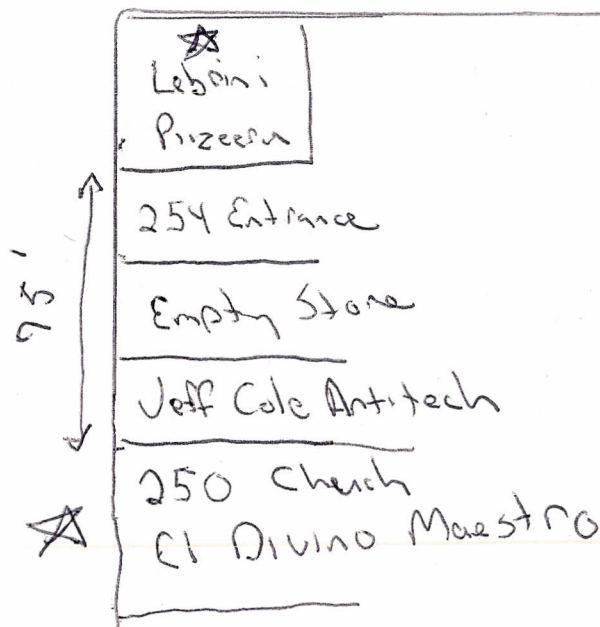 Lebrini
Pizzeria
254 Entrance
Empty Store
Jeff Cole Antitech
95'
250 Church
El Divino Maestro